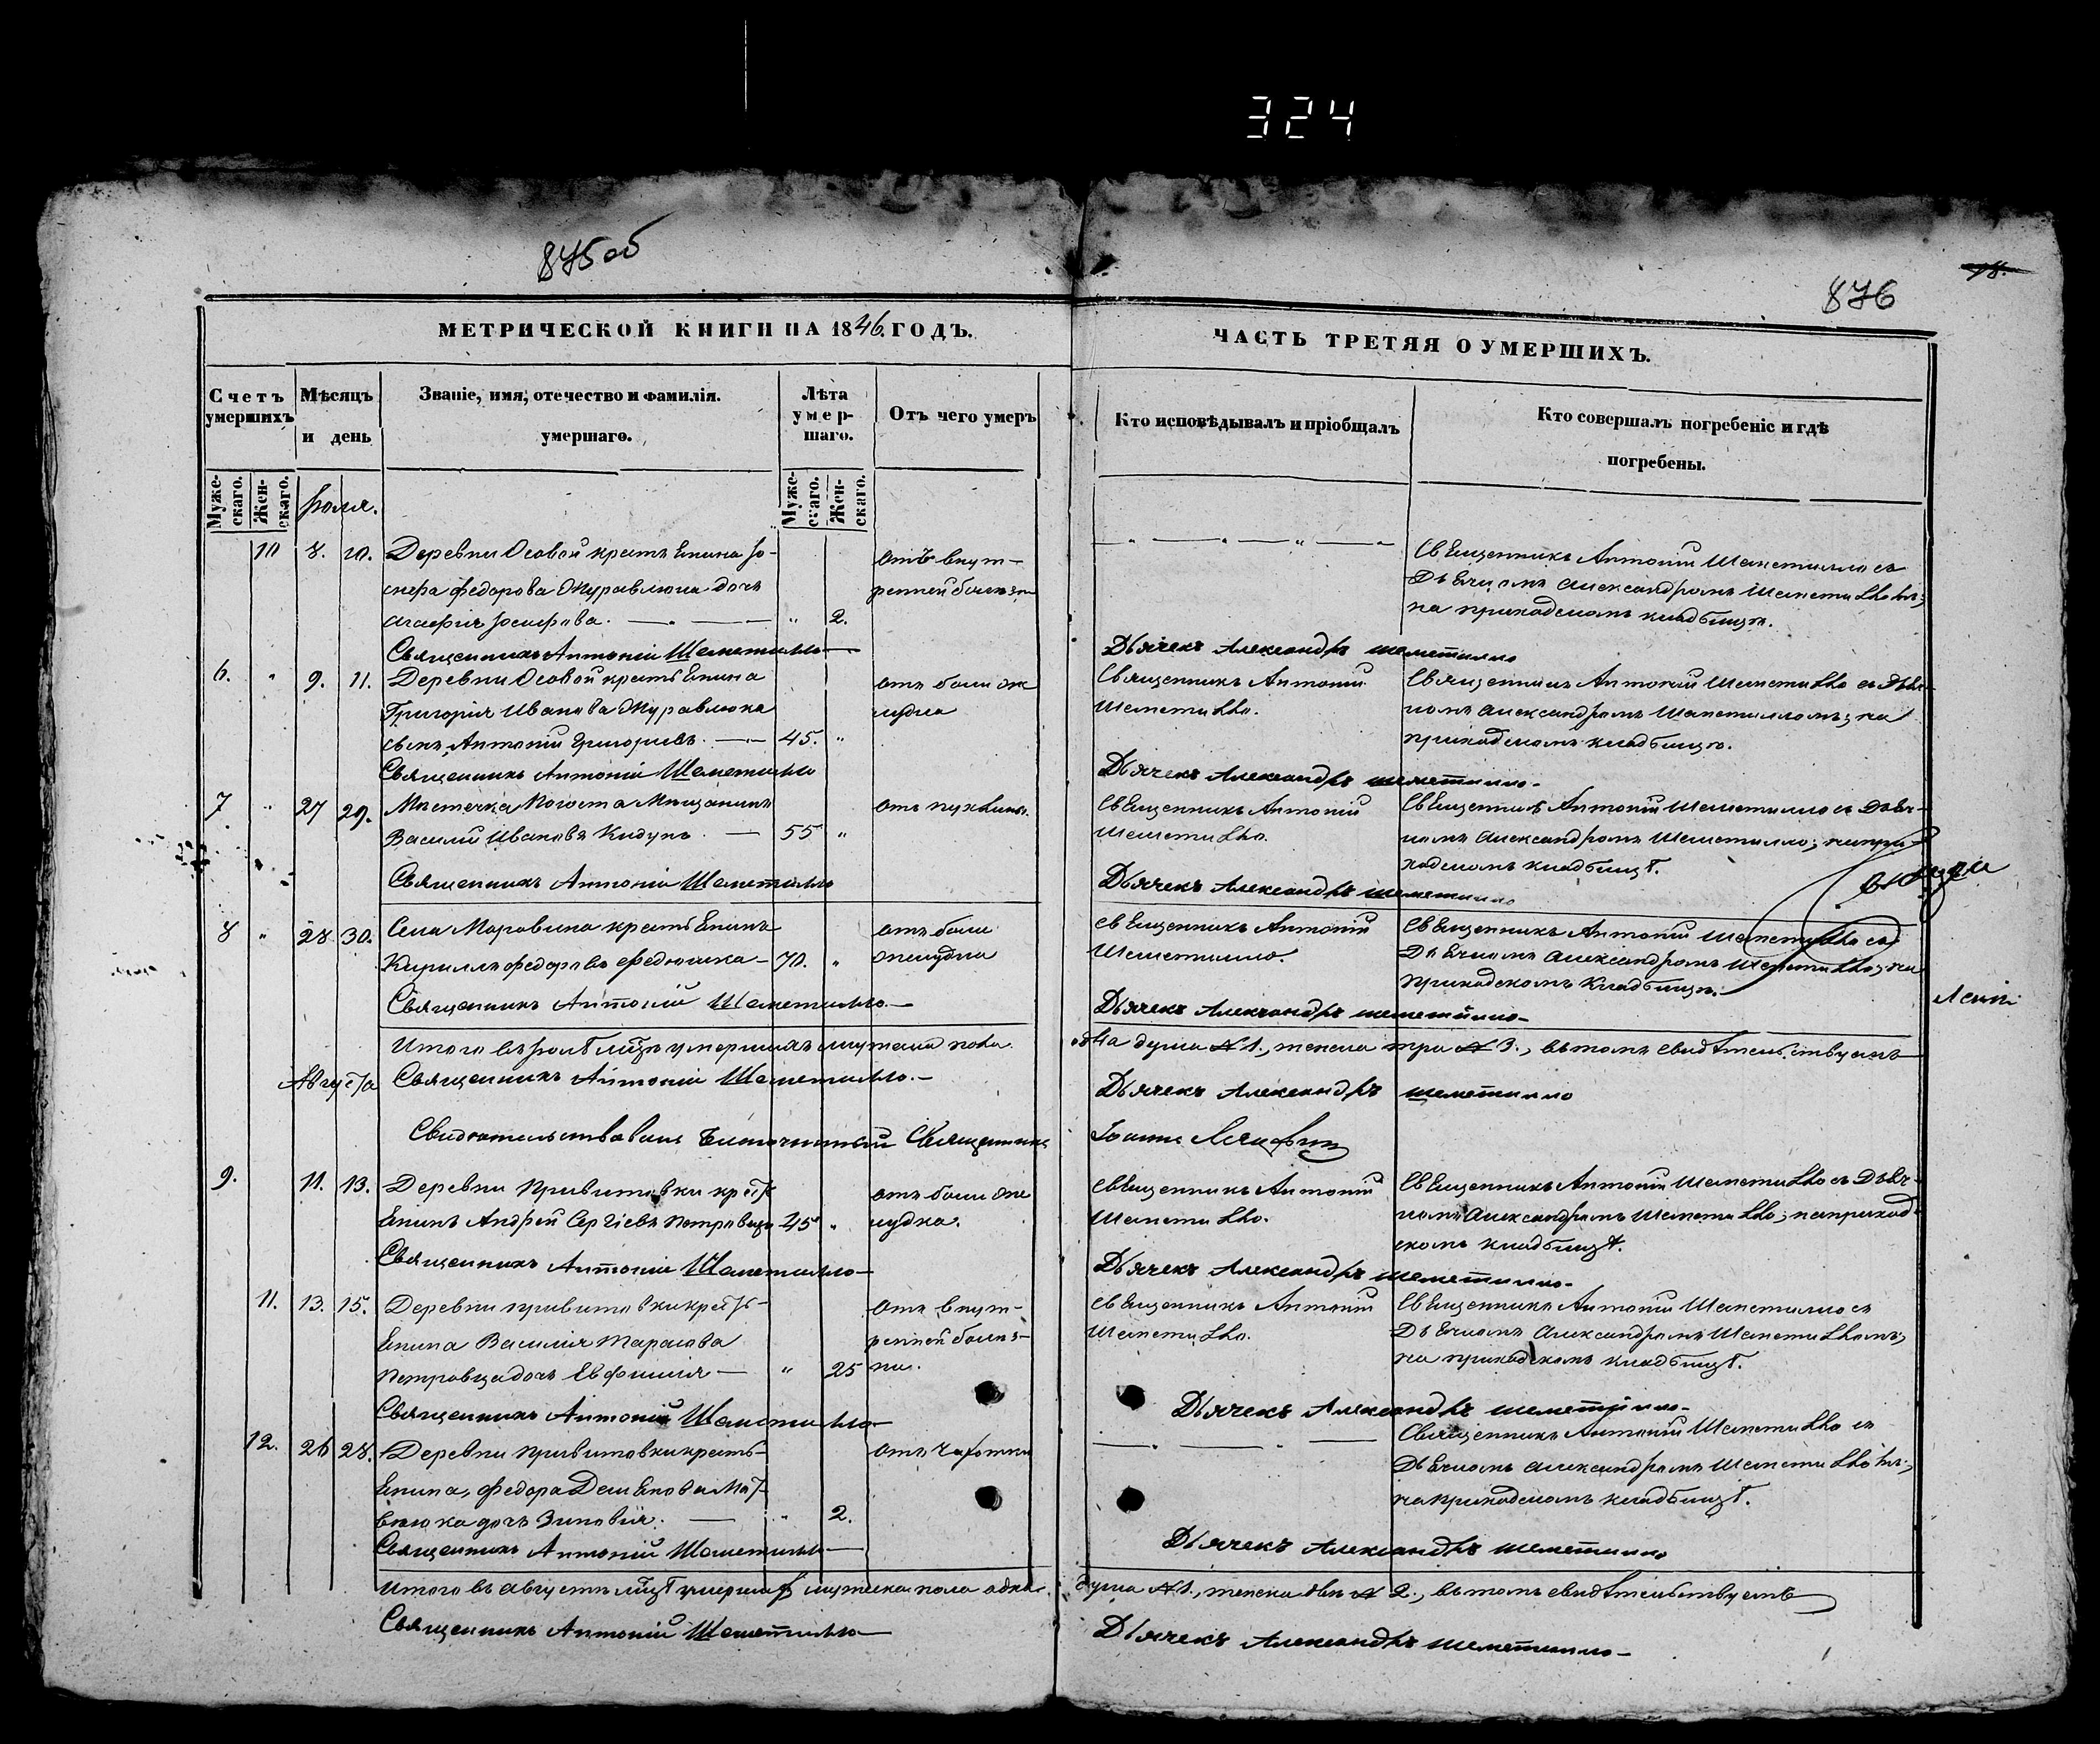 324
875 об
876
18.
МЕТРИЧЕСКОЙ КНИГИ НА 1846. ГОДЪ.
ЧАСТЬ ТРЕТЯЯ О УМЕРШИХЪ.
Счетъ умершихъ
Мѣсяцъ и день
Званіе, имя, отечество и фамилія. умершаго.
Лѣта умершаго.
Отъ чего умеръ
Кто исповѣдывалъ и пріобщалъ
Кто совершалъ погребеніе и гдѣ погребены.
Мужескаго.
Женскаго.
Мужескаго.
Женскаго.
Іюля.
10 8. 10. Деревни Осовой крестьянина Іо-
сифа Федорова Журавлюка дочь
Агафія Іосифова. " 2.
отъ внут-
ренней болезни
Священникъ Антоній Шеметилло съ
Дьячкомъ Александромъ Шеметилломъ;
на приходскомъ кладбищѣ.
Священникъ Антоній Шеметилло
Дьячекъ Александръ Шеметилло
6. " 9. 11. Деревни Осовой крестьянина
Григорія Иванова Журавлюка
сынъ Антоній Григорьевъ. 45. "
отъ боли же
лудка
Священникъ Антоній
Шеметилло.
Священникъ Антоній Шеметилло съ Дьяч-
комъ Александромъ Шеметилломъ; на
приходскомъ кладбищѣ.
Священникъ Антоній Шеметилло
Дьячекъ Александръ Шеметилло
7 " 27 29. Местечка Погоста Мещанинъ
Василій Ивановъ 55 "
Священникъ Антоній
Шеметилло.
Священникъ Антоній Шеметилло съ Дьяч-
комъ Александромъ Шеметилло; на при-
ходскомъ кладбищѣ.
Священникъ Антоній Шеметилло
Дьячекъ Александръ Шеметилло
8 " 28 30. Села Моровина крестьянинъ
Кириллъ Федоровъ 70. "
отъ боли
желудка
Священникъ Антоній
Шеметилло.
Священникъ Антоній Шеметилло съ
Дьячкомъ Александромъ Шеметилло; на
приходскомъ кладбищѣ.
Священникъ Антоній Шеметилло
Дьячекъ Александръ Шеметилло
Итого въ Іюлѣ м͠цѣ умершихъ мужеска пола
душа № 1., женска три № 3., въ томъ свидѣтельствуемъ
Священникъ Антоній Шеметилло.
Дьячекъ Александръ Шеметилло
Августа
Свидѣтельствовалъ Благочинный Священникъ
Іоаннъ
9. 11. 13. Деревни Привитовки кресть
янинъ Андрей Сергіевъ Петровецъ 45 "
отъ боли же
лудка.
Священникъ Антоній
Шеметилло.
Священникъ Антоній Шеметилло съ Дьяч-
комъ Александромъ Шеметилло; на приход-
скомъ кладбищѣ.
Священникъ Антоній Шеметилло
Дьячекъ Александръ Шеметилло
11. 13. 15. Деревни Привитовки кресть-
янина Василія Тарасова
Петровца дочь Евфимія " 25
отъ внут-
ренней болез-
ни.
Священникъ Антоній
Шеметилло.
Священникъ Антоній Шеметилло съ
Дьячкомъ Александромъ Шеметилломъ;
на приходскомъ кладбищѣ.
Священникъ Антоній Шеметилло
Дьячекъ Александръ Шеметилло
12. 26 28. Деревни Привитовки кресть-
янина, Федора Мат-
веюка дочь Зиновія. " 2.
отъ чахотки
Священникъ Антоній Шеметилло съ
Дьячкомъ Александромъ Шеметилломъ;
на приходскомъ кладбищѣ.
Священникъ Антоній Шеметилло
Дьячекъ Александръ Шеметилло
Итого въ Августѣ м͠цѣ умершихъ мужеска пола одна
душа № 1., женска двѣ № 2., въ томъ свидѣтельствуемъ
Священникъ Антоній Шеметилло
Дьячекъ Александръ Шеметилло